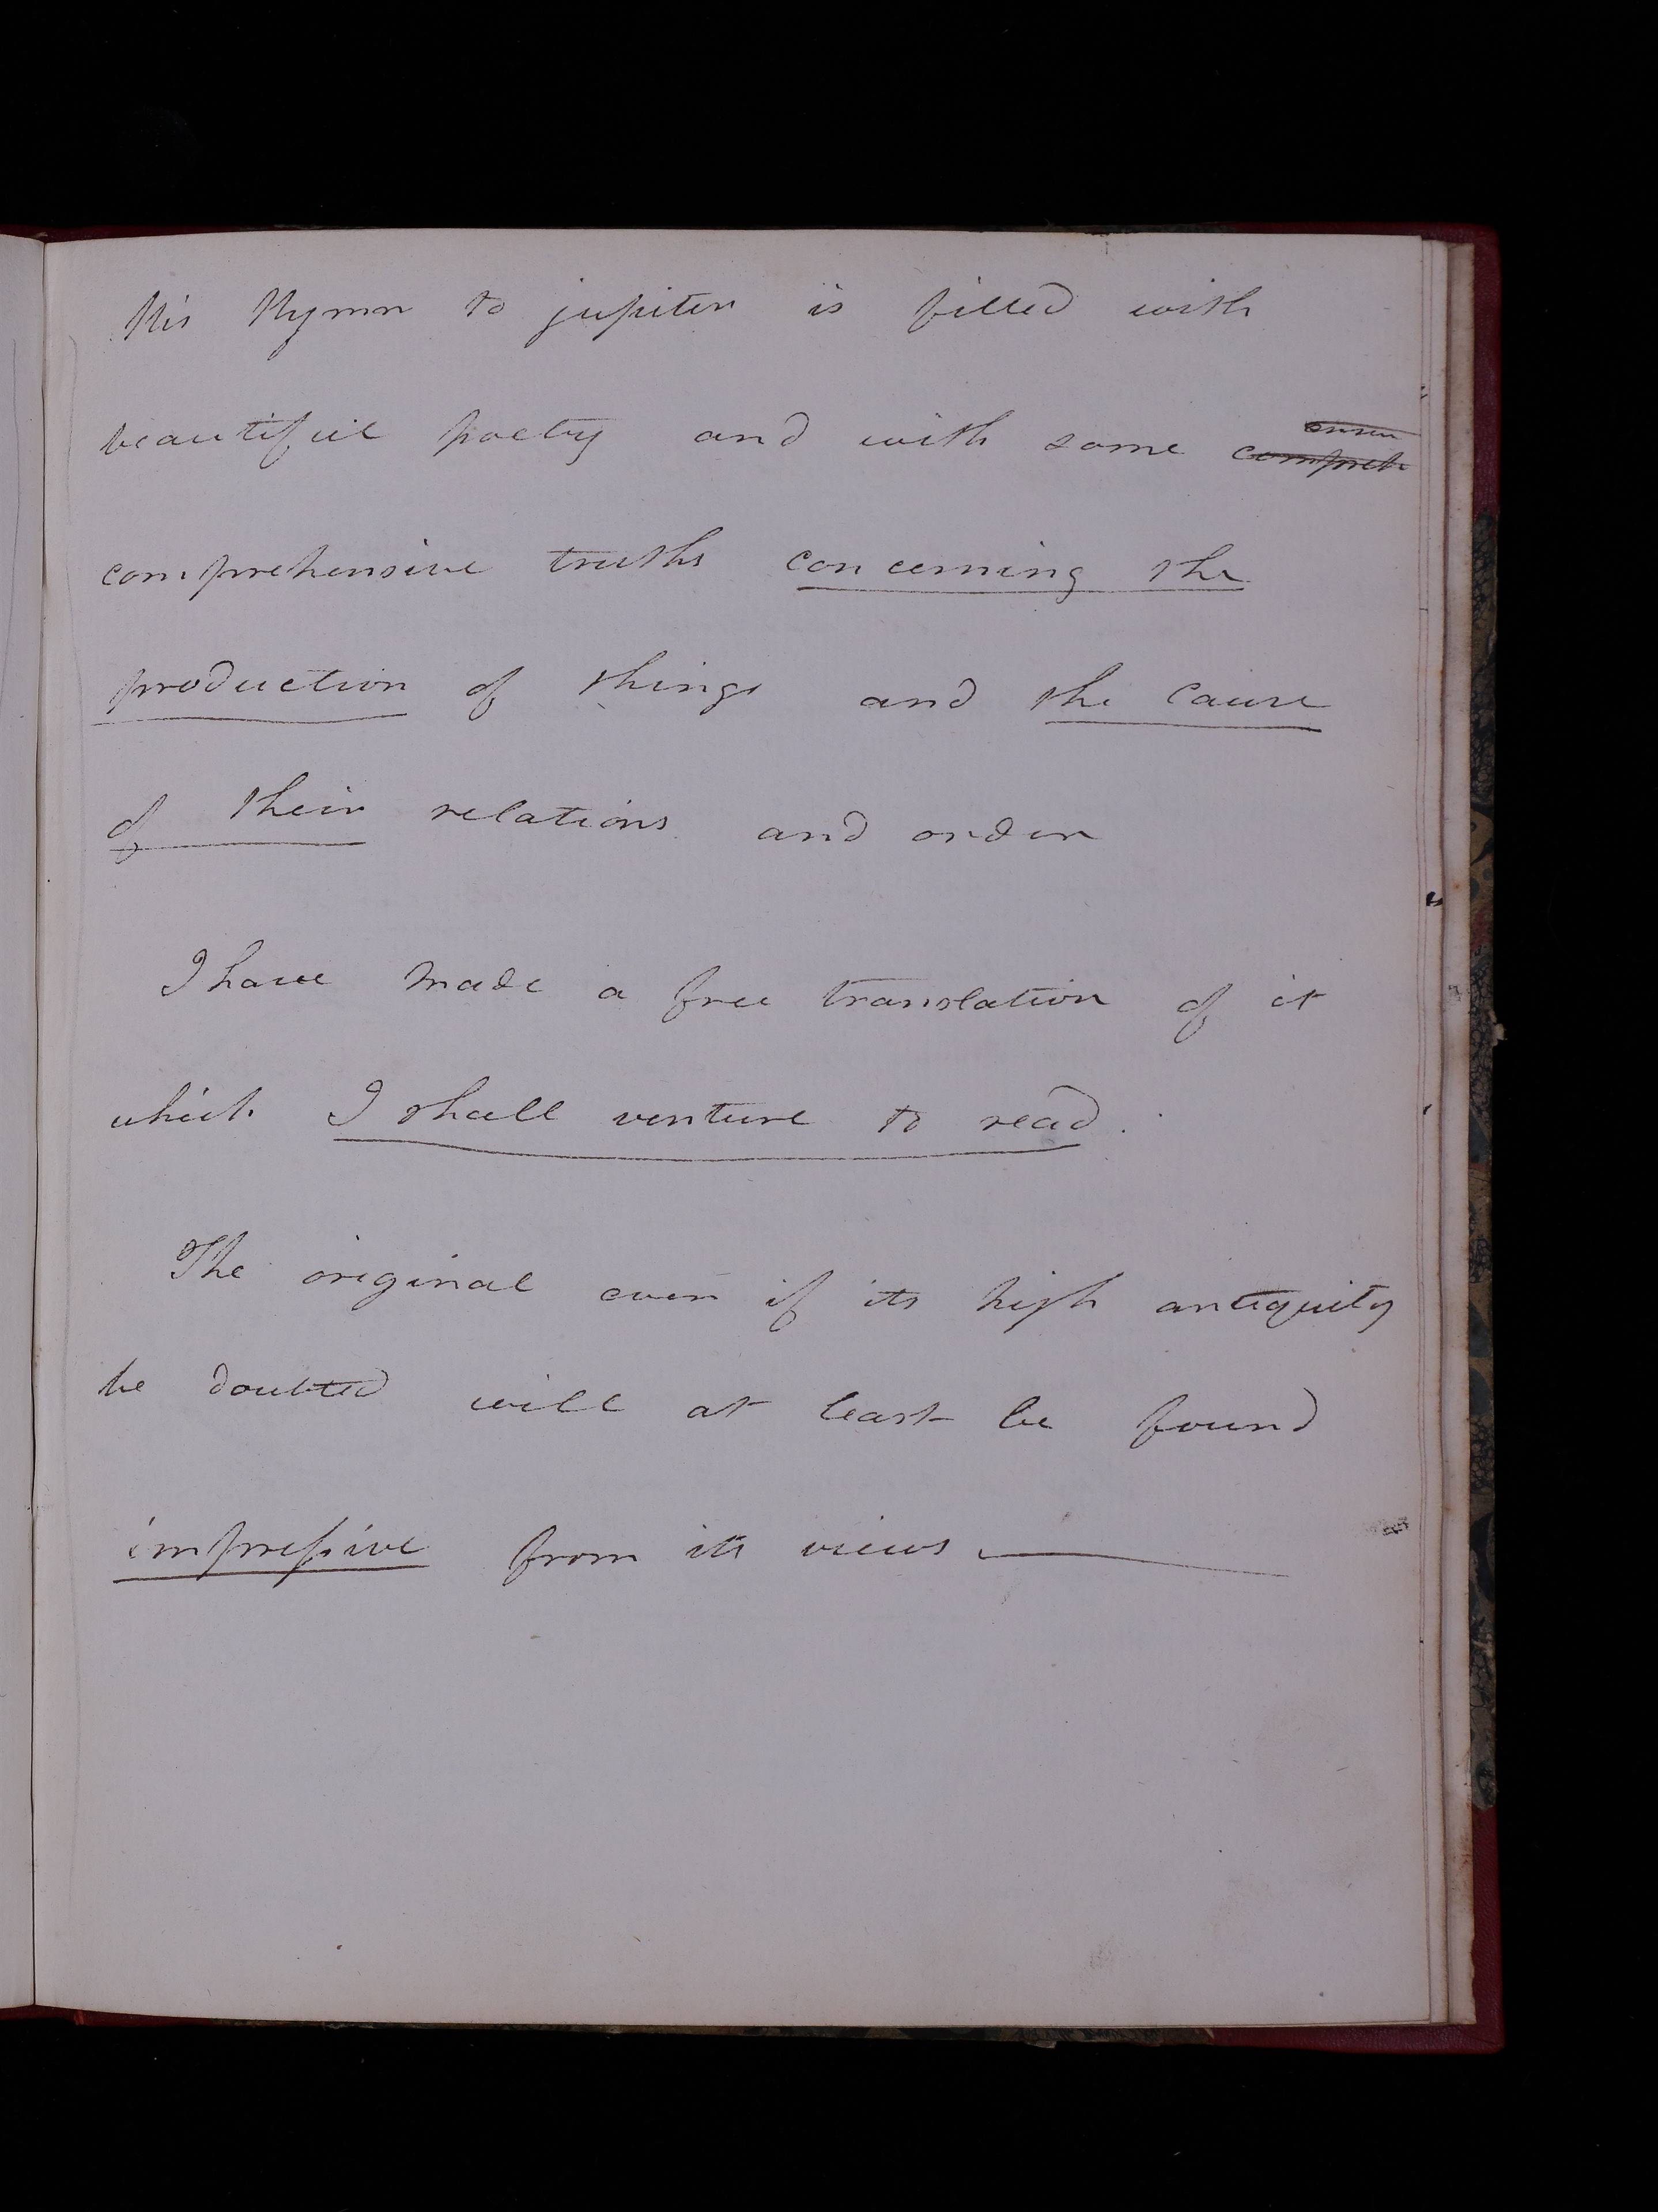 His Hymn to jupiter is filled with
beautiful poetry and with some compreh
comprehensive truths concerning the
production of things and the cause
of their relations and order
I have made a free translation of it
which I shall venture to read.
The original even if its high antiquity
be doubted will at least be found
impressive from its views